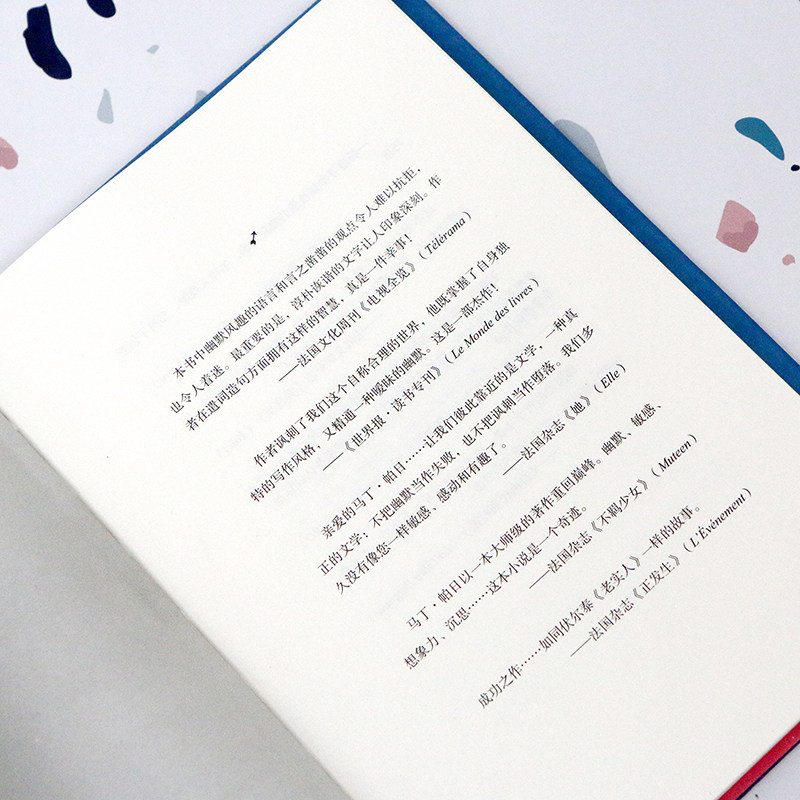 本书中幽默风趣的语言和言之凿凿的观点令人难以抗拒，
也令人着迷。最重要的是，淳朴诙谐的文字让人印象深刻。作
者在遣词造句方面拥有这样的智慧，真是一件幸事！
——法国文化周刊《电视全览》（Télérama）
作者讽刺了我们这个自称合理的世界，他既掌握了自身独
特的写作风格，又精通一种暧昧的幽默。这是一部杰作！
——《世界报·读书专刊》（Le Monde des livres）
亲爱的马丁·帕日……让我们彼此靠近的是文学，一种真
正的文学：不把幽默当作失败，也不把讽刺当作堕落。我们多
久没有像您一样敏感、感动和有趣了。
——法国杂志《她》（Elle）
马丁·帕日以一本大师级的著作重回巅峰。幽默、敏感、
想象力、沉思……这本小说是一个奇迹。
——法国杂志《不羁少女》（Muteen）
成功之作……如同伏尔泰《老实人》一样的故事。
——法国杂志《正发生》（L'Évènement）